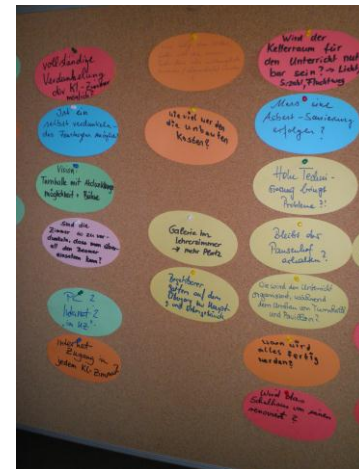 vollständige
Verdunkelung
der Kl-Zimmer
möglich?
Ist ein
selbst verdunkeln
des Zimmers möglich?
Vision:
Turnhalle mit Abdunklungs-
möglichkeit + Bühne
Sind die
Zimmer so zu ver-
dunkeln, dass man
den Beamer
einsetzen kann?
PC ?
Internet ?
im KZ
Internet-
Zugang in
jedem Kl-Zimmer?
Wie viel werden
die Umbauten
kosten?
Galerie im
Lehrerzimmer
→ mehr Platz
auf dem
Übergang
Wird der
Kellerraum für
den Unterricht nutz
bar sein? → Licht,
Fluchtweg
Muss eine
Asbest-Sanierung
erfolgen?
Hohe Technisi-
erung bringt
Probleme?!
Bleibt der
Pausenhof
erhalten?
Wie wird der Unterricht
organisiert, während
dem Umbau von Turnhalle
und Pavillon?
Wann wird
alles fertig
werden?
Wird das
Schulhaus von
renoviert?